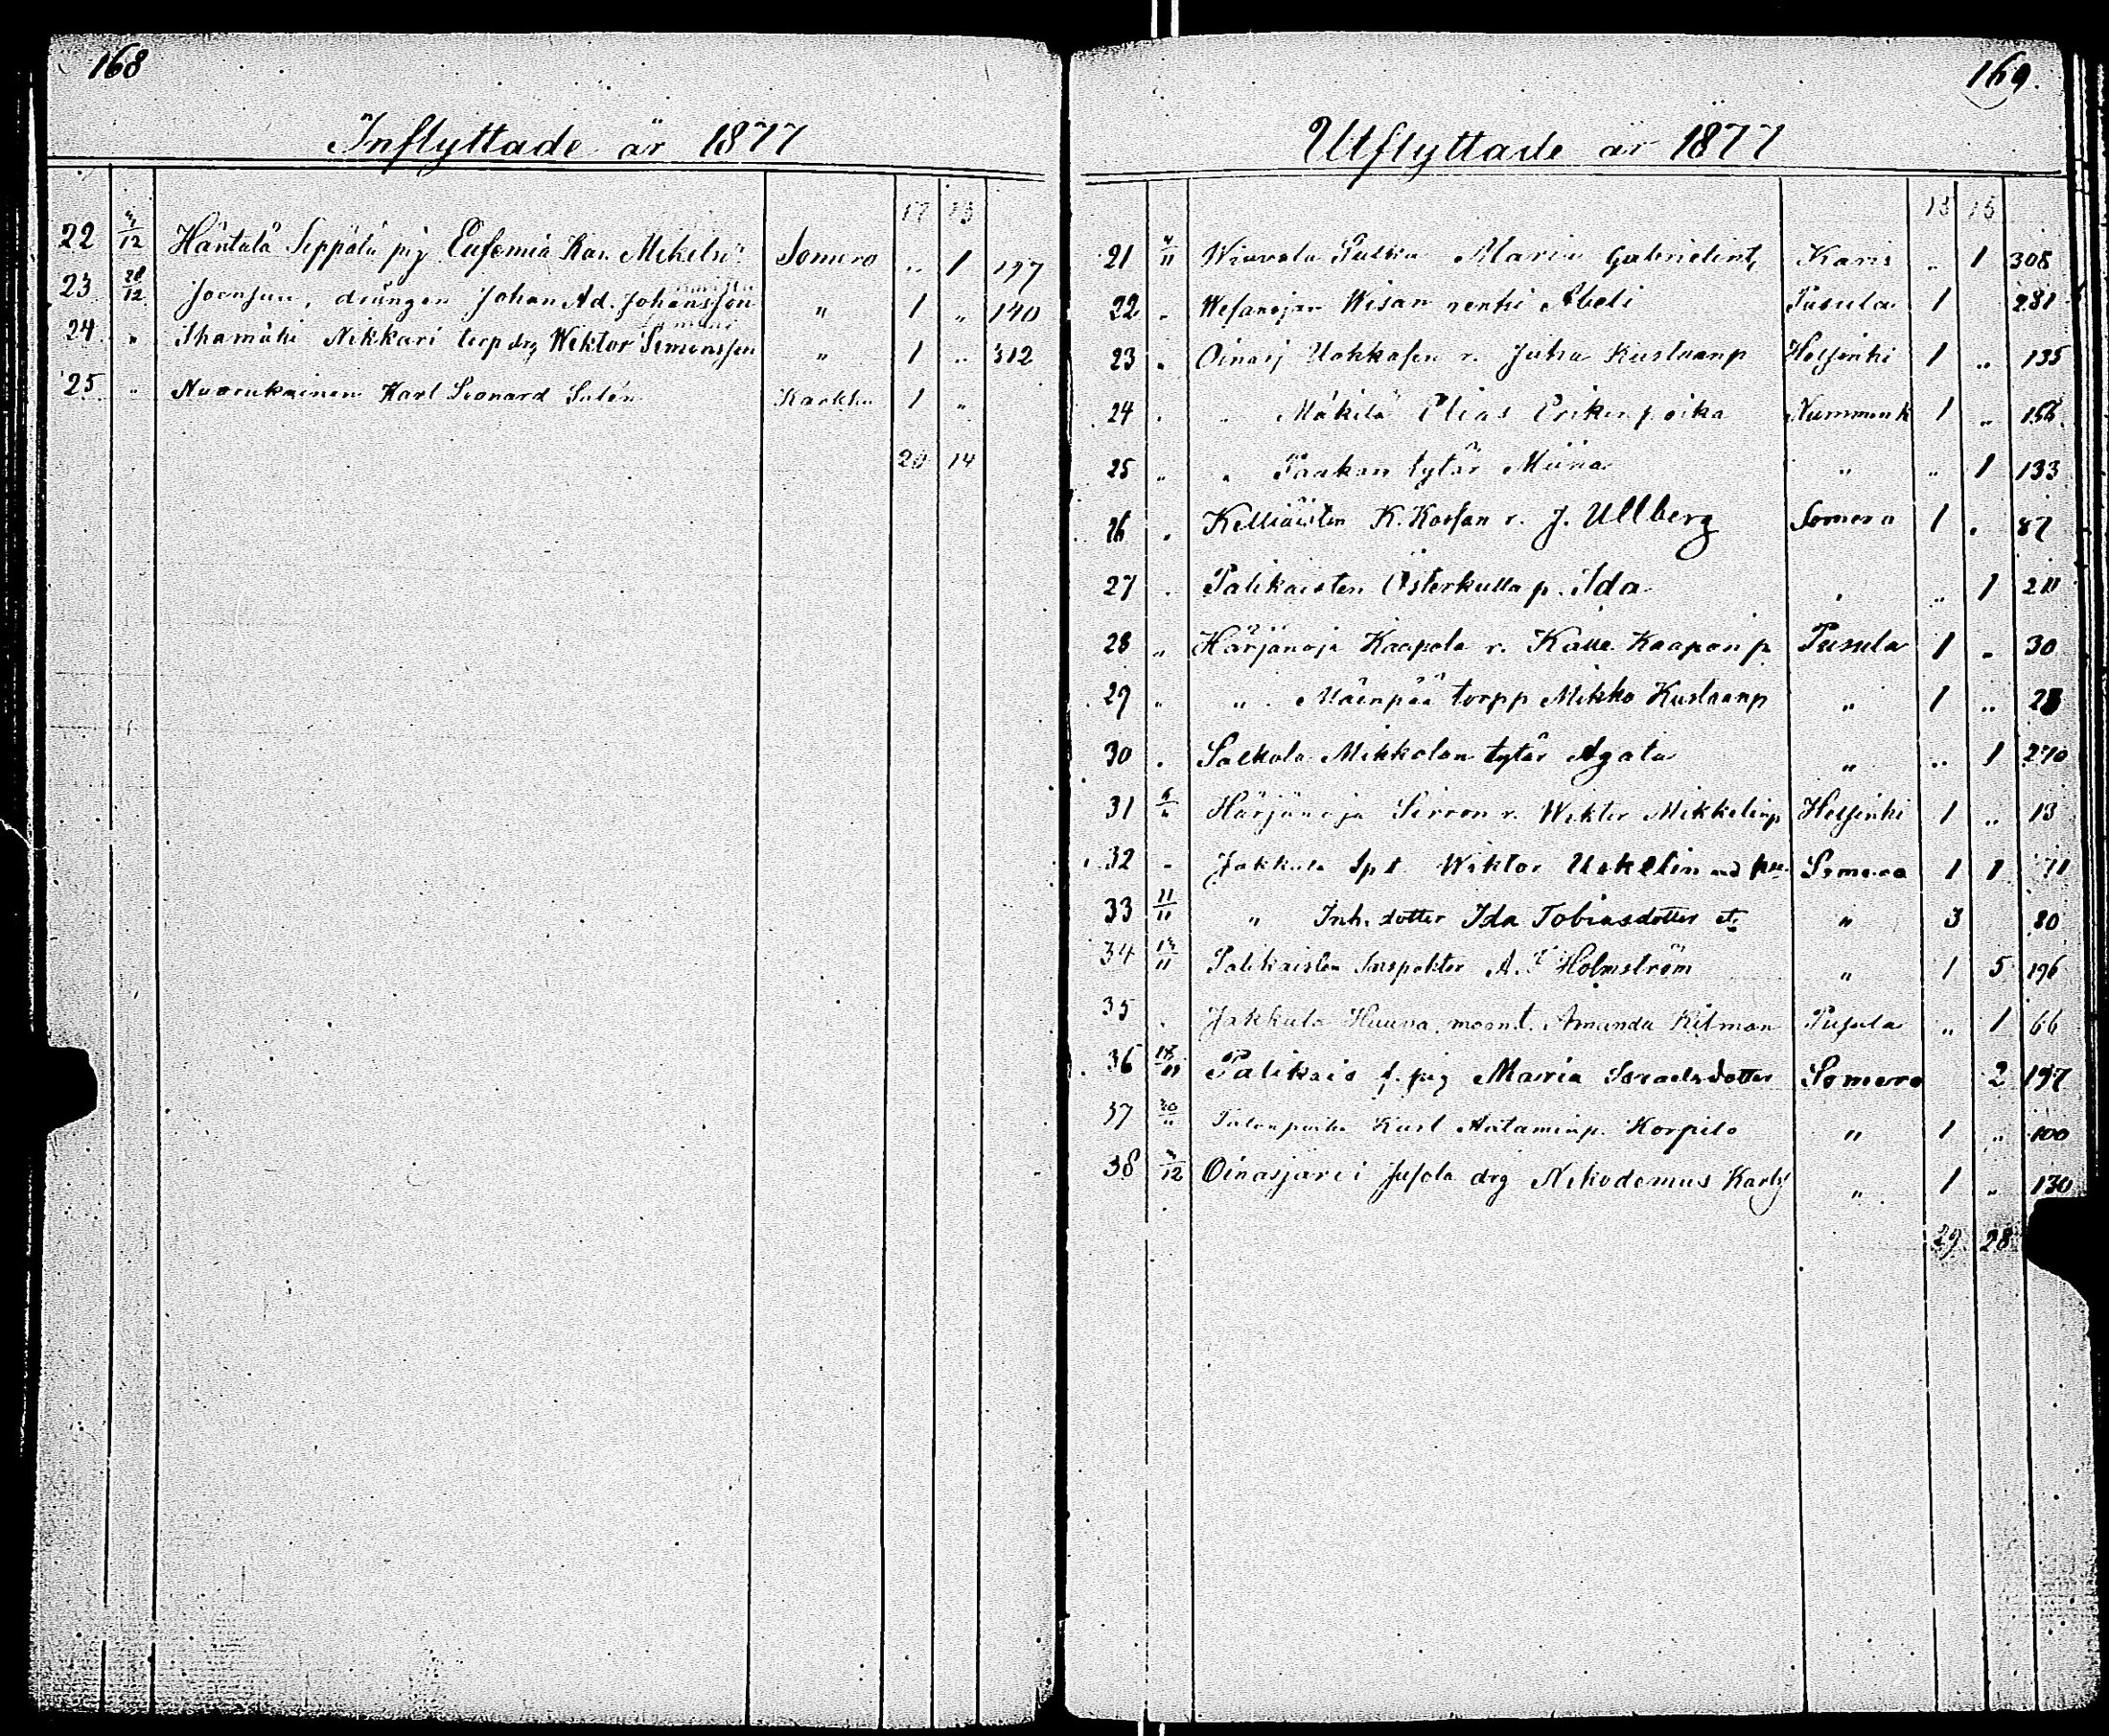 168
Inflyttade år 1877
17 13
22 4/12 Häntälä Seppälä pig Eufemia Kar. Mikelsd. Somero „ 1 197
23 28/12 Joensuu, drängen Johan Ad. Johansson „ 1 „ 140
24 „ Ihamäki Nikkari torp drg Wiktor Simonsson „ 1 „ 312
25 „ Nuorukainen Karl Leonard Salén Karkku 1 „
20 14
169.
Utflyttade år 1877
13 15
21 4/11 Maria Gabrielint. Karis „ 1 308
22 „ Wesanojan Wisan renki Abeli Pusula 1 281
23 „ Oinasj Ukkosen r. Juha Kustaanp Helsinki 1 „ 135
24 „ „ Mäkilä Elias Erikinpoika Nummenk 1 „ 156
25 „ „ Paakan tytär Miina „ „ 1 133
26 „ Kelliäisten K. Korsan r. J. Ullberg Somero 1 „ 87
27 „ Palikaisten Österkulla p. Ida „ „ 1 211
28 „ Härjänoja Kaapola r. Kalle Kaaponp Pusula 1 „ 30
29 „ „ Mäenpää torpp Mikko Kustaanp „ 1 „ 28
30 „ Salkola Mikkolan tytär Agata „ „ 1 270
31 Härjänoja Sirron r. Wiktor Mikkelinp Helsinki 1 „ 13
32 „ Jakkula Spt Wiktor Uskelin Somero 1 1 71
33 11/11 „ Inh. dotter Ida Tobiasdotter etc „ 3 80
34 13/11 Palikaisten Inspektor A. F. Holmström „ 1 5 196
35 „ Jakkula Amanda Kilman Pusula „ 1 66
36 18/11 Palikais f. pig Maria Israelsdotter Somero 2 197
37 30/11 Talonpoika Karl Aataminp. Korpilo „ 1 „ 100
38 Oinasjärvi Jusola drg Nikodemus Karls „ 1 „ 130
29 28